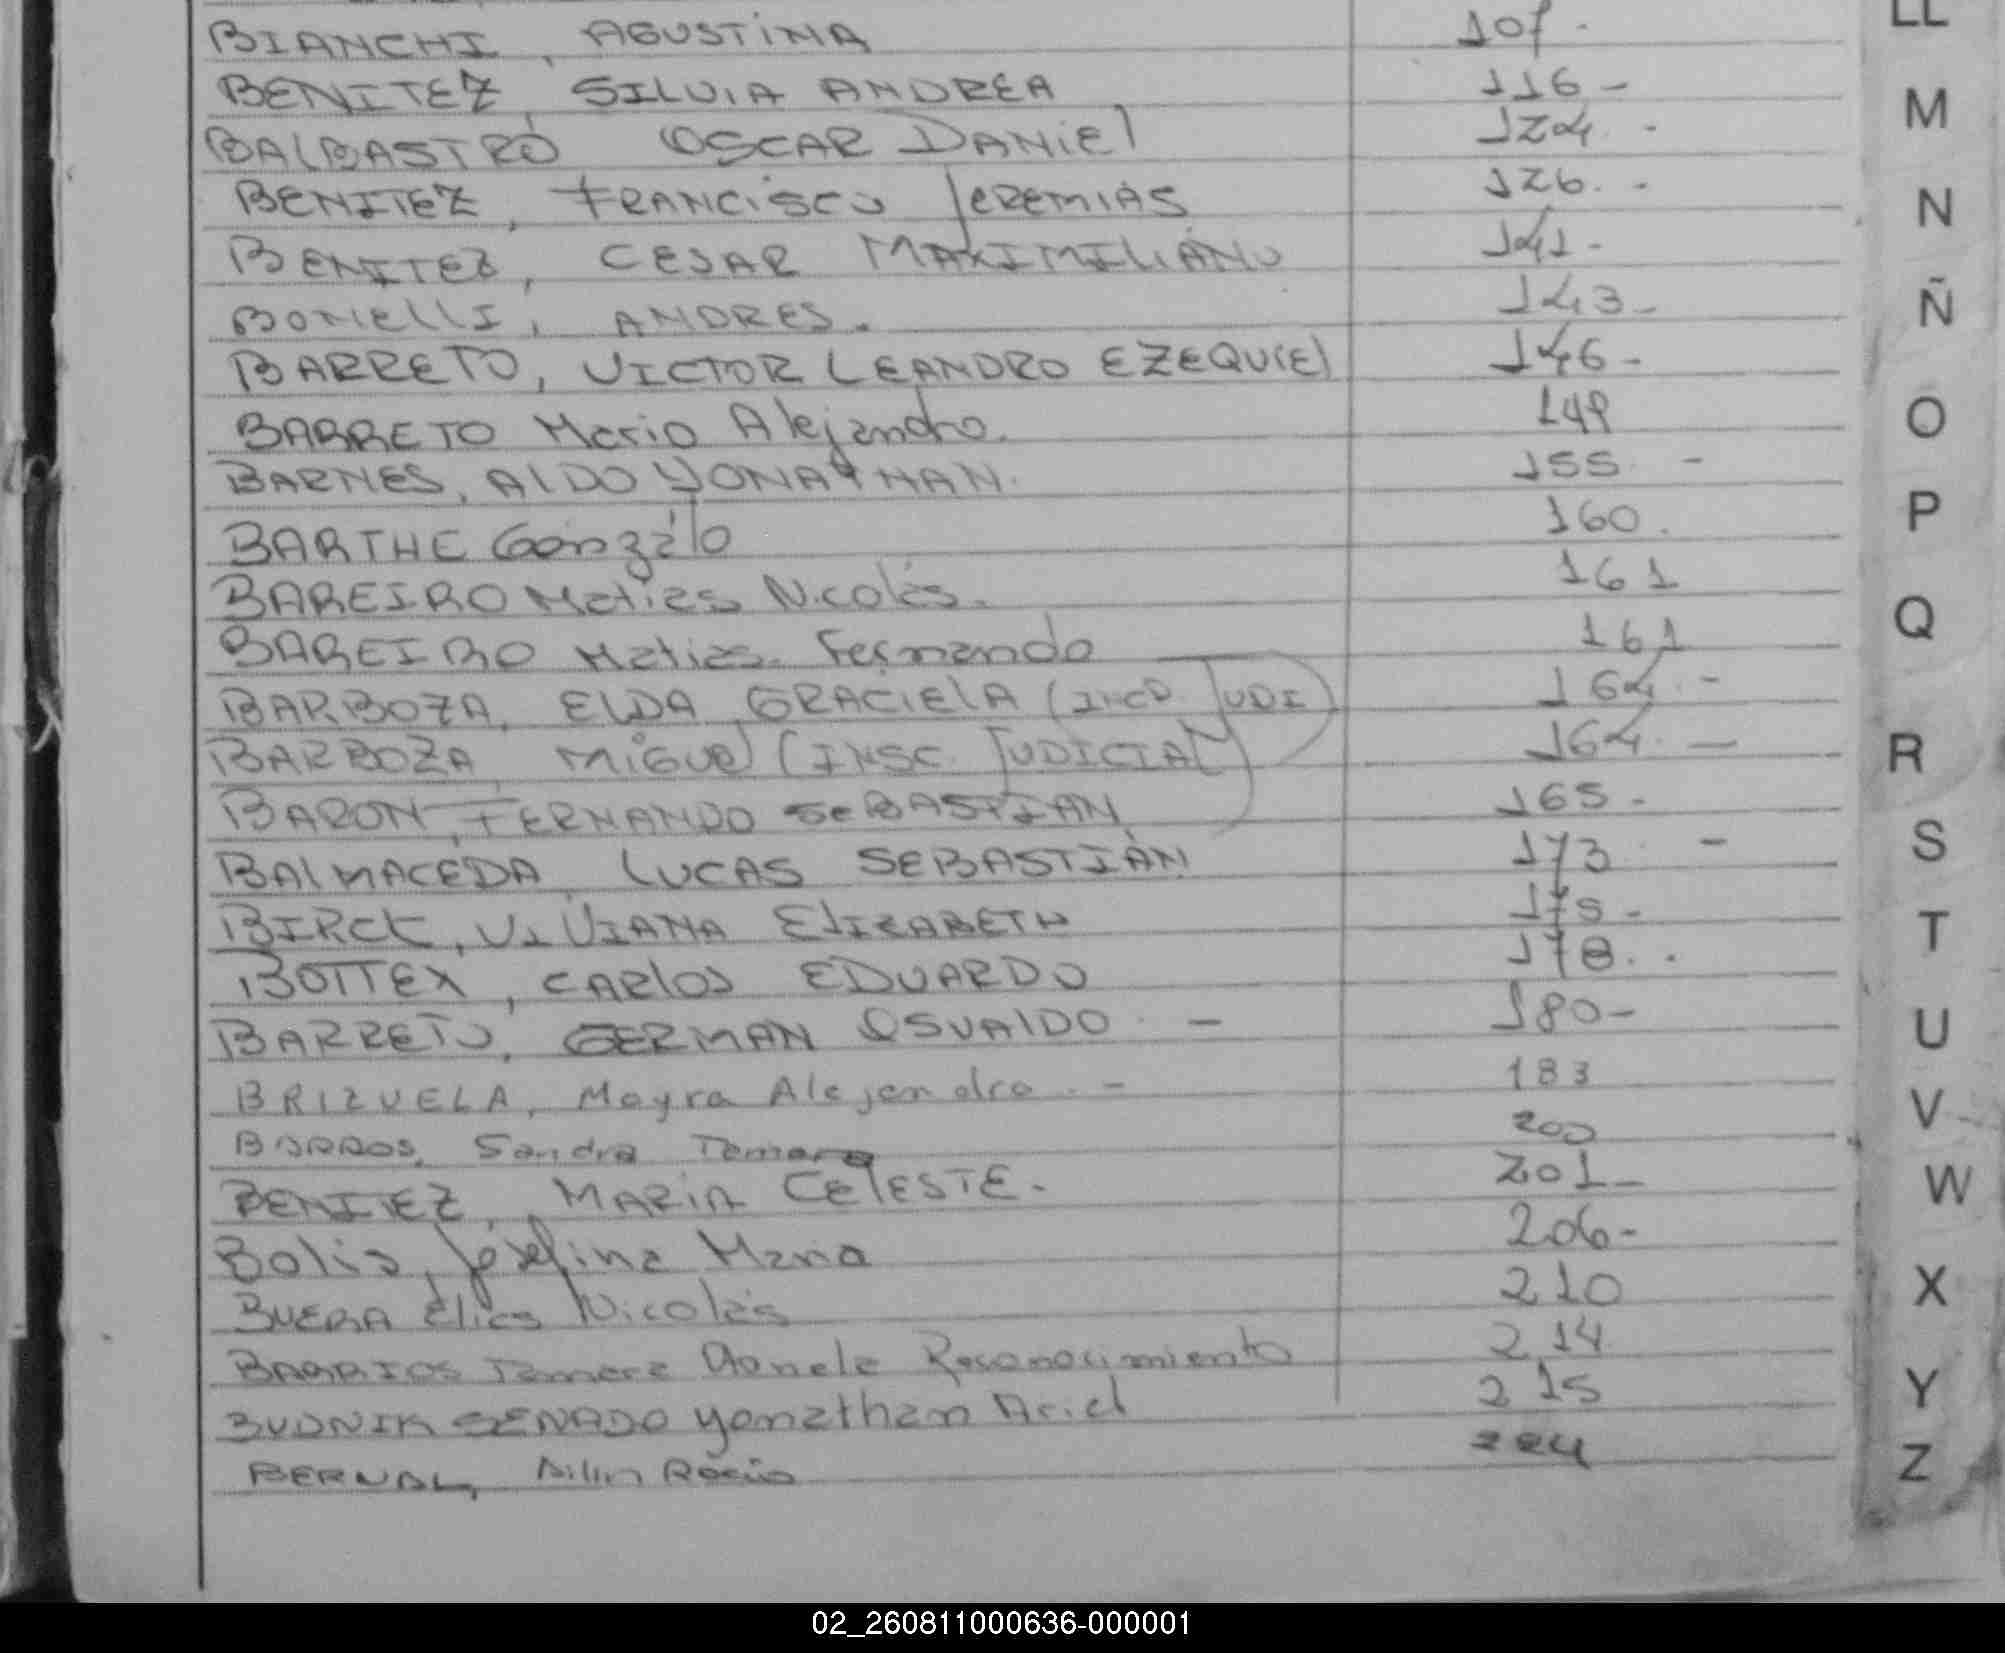 BIANCHI, AGUSTINA 107.-
BENITEZ, SILVIA ANDREA 116-
BALBASTRO OSCAR DANiEl 124.-
BENITEZ, FRANCiSCO JEREMIAS 126.-
BENITEZ, CESAR MAXIMILIANO 141-
BONEllI, ANDRES. 143-
BARRETO, VICTOR LEANDRO EZEQUIEl 146-
BARRETO Mario Alejandro. 149
BARNES, AlDO YONATHAN. 155 -
BARTHE Gonzalo 160.
BAREIRO Matias Nicolás. 161
BAREIRO Matias Fernando 161
BARBOZA, ElDA GRACIElA (INCP. JUDI) 164.-
BARBOZA, MiGUEl (INSC. JUDICIAL) 164.-
BARON, FERNANDO SEBASTIAN 165-
BAlMACEDA, LUCAS SEBASTIÁN 173 -
BIRCK, VIVIANA ElIZABETH 175-
BOTTEX, CARlOS EDUARDO 178..
BARRETO, GERMAN OSVAlDO - 180-
BRIZUELA, Mayra Alejandra.- 183
BARROS, Sandra Tamara 200
BENITEZ, MARIA CElESTE. 201-
Bolis, Josefina Maria 206-
BUERA Elias Nicolás 210
BARRIOS Tamara Reconocimiento 214.
BUDNIK SENADO Yonathan Ariel 215
BERNAL, Ailin Rocío 224
LL
M
N
Ñ
O
P
Q
R
S
T
U
V
W
X
Y
Z
02_260811000636-000001